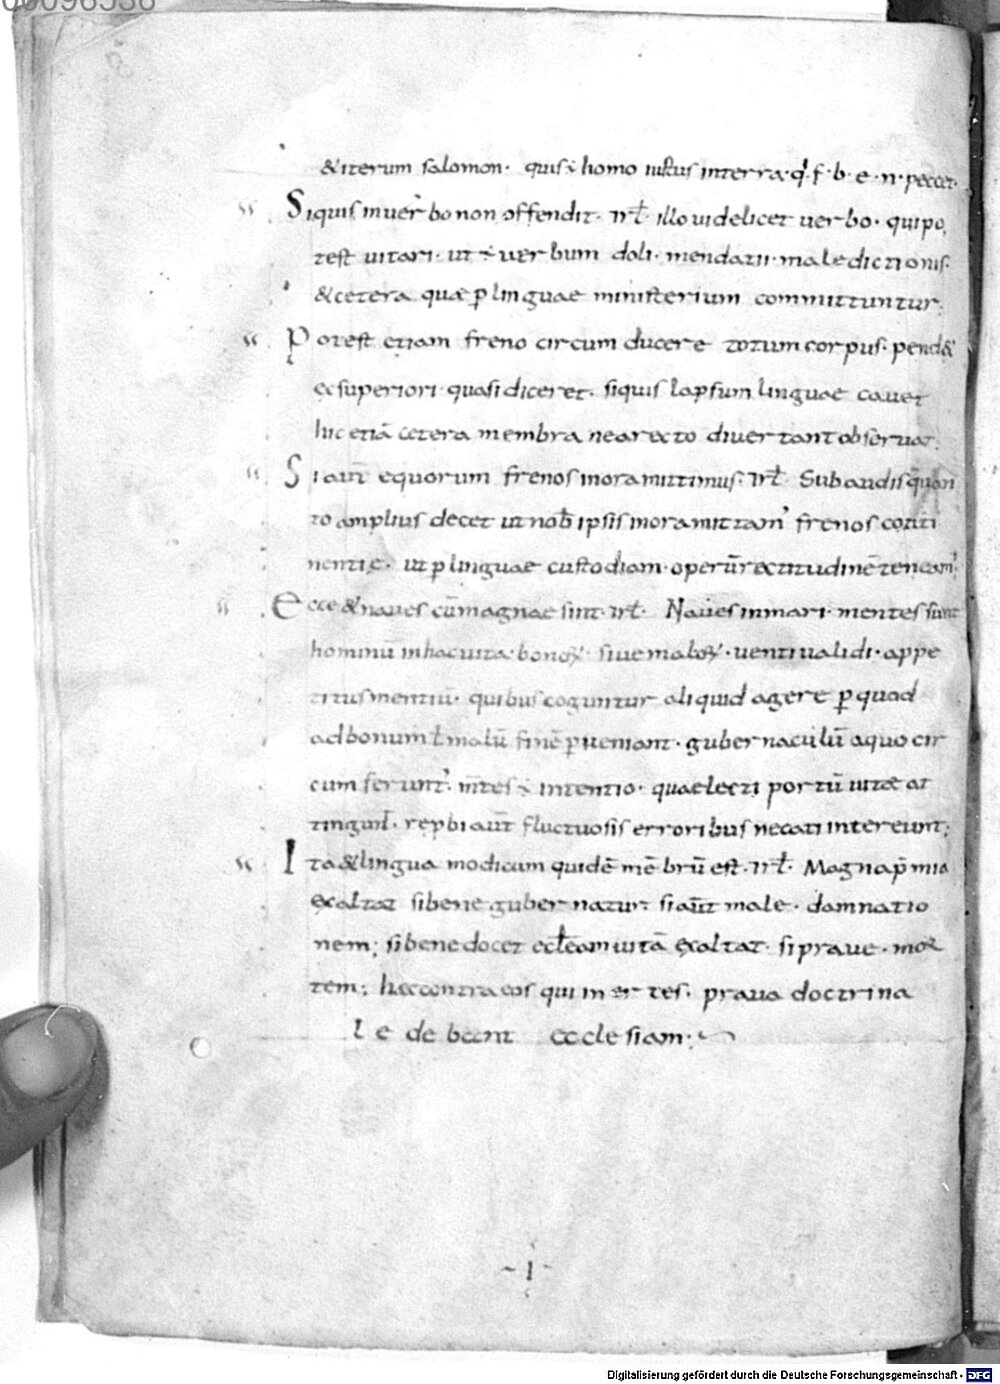 00096536
& iterum salomon· quis ÷ homo iustus interra· q̇· f· b· e· n· peccet·
Siquis in uerbo non offendit· rl̄· illo uidelicet uerbo· qui po
test uitari· ut ÷ uerbum doli· mendatii· maledictionis·
& cetera quae ꝑ linguae ministerium committuntur·
Potest etiam freno circum ducere totum corpus· pend&
ex superiori· quasi diceret· siquis lapsum linguae cauet
hic etiā cetera membra ne a recto diuertant obseruat·
Si aut̄ equorum frenos in ora mittimus· rl̄· Subaudis quan
to amplius decet ut nob̄ ipsis in ora mittam' frenos conti
nentię· ut ꝑ linguae custodiam· operū rectitudinē teneam'
Ecce & naues cū magnae sint· rl̄· Naues in mari· mentes sunt
hominū in hac uita· bonoꝝ· siue maloꝝ· uenti ualidi· appe
titus mentiū· quibus coguntur aliquid agere ꝑ quod
ad bonum ł malū finē ꝑueniant· gubernaculū a quo cir
cum ferunt'· mētes ÷ intentio· qua electi portū uitae at
tingunt· repbi aut̄ fluctuosis erroribus necati intereunt;
Ita & lingua modicum quidē mēbrū est· rl̄· Magna p̄mia
exaltat si bene gubernatur· si aut̄ male· damnatio
nem; si bene docet ecłeam uitā exaltat· si praue· mor
tem; hec contra eos qui inertes· praua doctrina
ledebant ecclesiam·
- I -
Digitalisierung gefördert durch die Deutsche Forschungsgemeinschaft - DFG